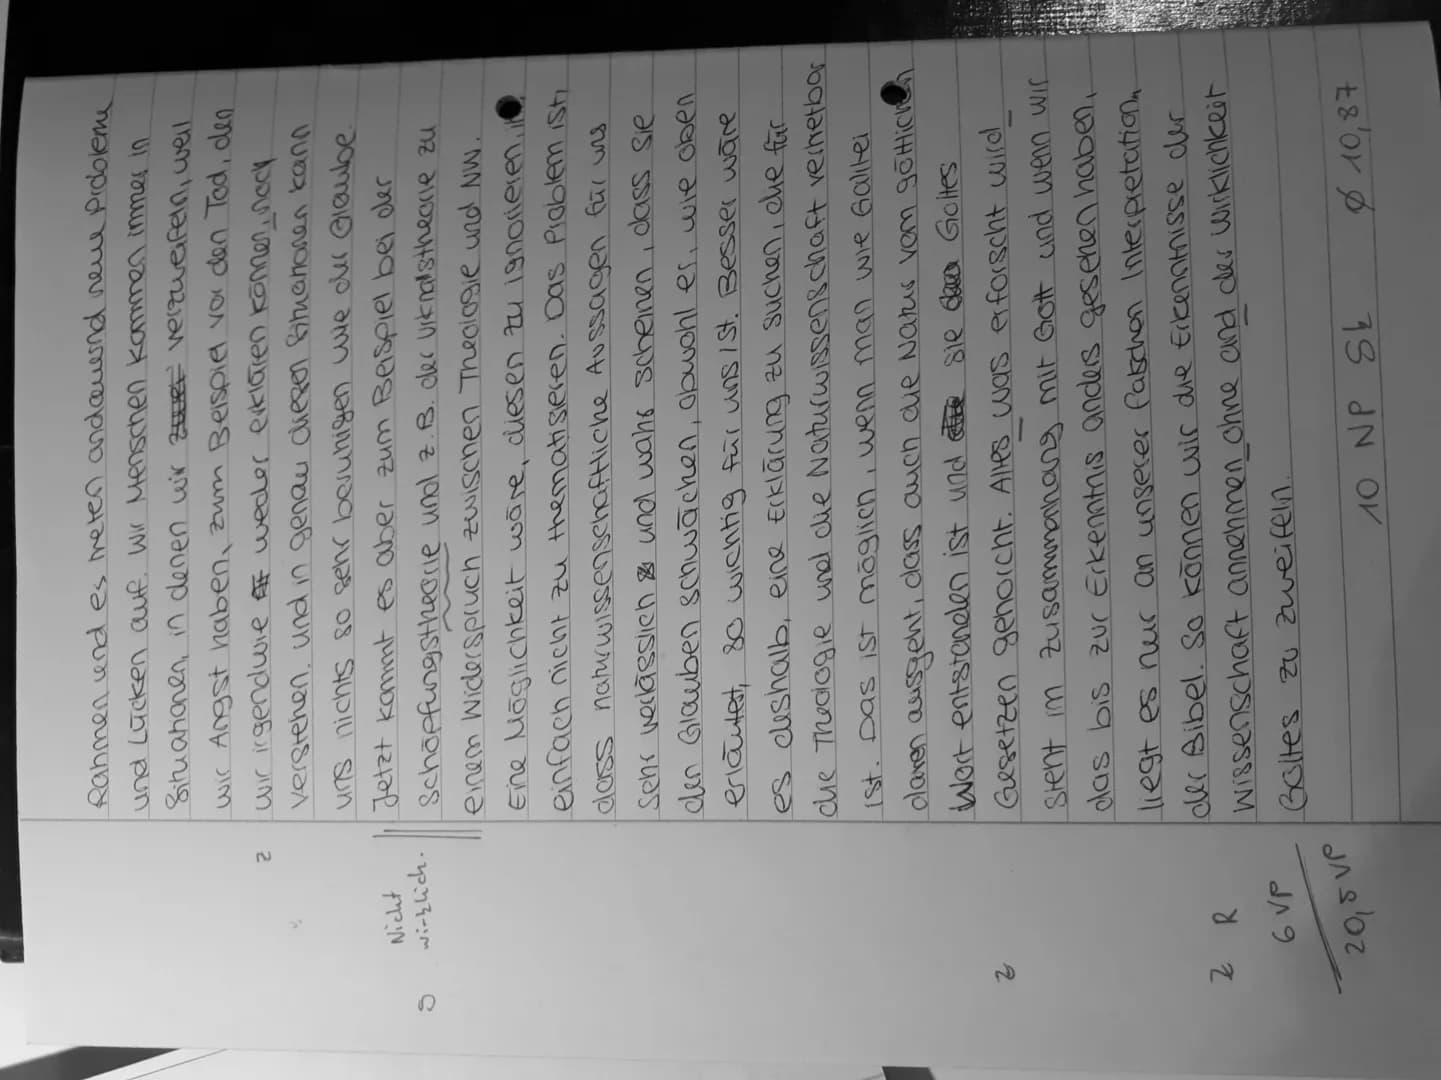 Rahmen und es treten andauernd neue Probleme
und Lücken auf. Wir Menschen kommen immer in
Situationen, in denen wir verzweifeln, weil
wir Angst haben, zum Beispiel vor den Tod, den
z wir irgendwie weder erklären können, noch
verstehen. Und in genau diesen Situationen kann
uns nichts so sehr beruhigen wie der Glaube.
Nicht Jetzt kommt es aber zum Beispiel bei der
S wirklich. Schöpfungstheorie und z.B. der Urknalstheorie zu
einem Widerspruch zwischen Theologie und NW.
Eine Möglichkeit wäre, diesen zu ignorieren, ihn
einfach nicht zu thematisieren. Das Problem ist,
dass naturwissenschaftliche Aussagen für uns
sehr verlässlich und wahr scheinen, dass sie
den Glauben schwächen, obwohl er, wie oben
erläutert, so wichtig für uns ist. Besser wäre
es deshalb, eine Erklärung zu suchen, die für
die Theologie und die Naturwissenschaft vertretbar
ist. Das ist möglich, wenn man wie Galilei
davon ausgeht, dass auch die Natur von göttlichen
Wort entstanden ist und sie Gottes
z Gesetzen gehorcht. Alles was erforscht wird
steht im zusammenhang mit Gott und wenn wir
das bis zur Erkenntnis anders gesehen haben,
liegt es nur an unserer falschen Interpretation
der Bibel. So können wir die Erkenntnisse der
Z R Wissenschaft annehmen ohne and der Wirklichkeit
6 VP Gottes zu zweifeln.
20,5 VP 10 NP SL ∅ 10,87